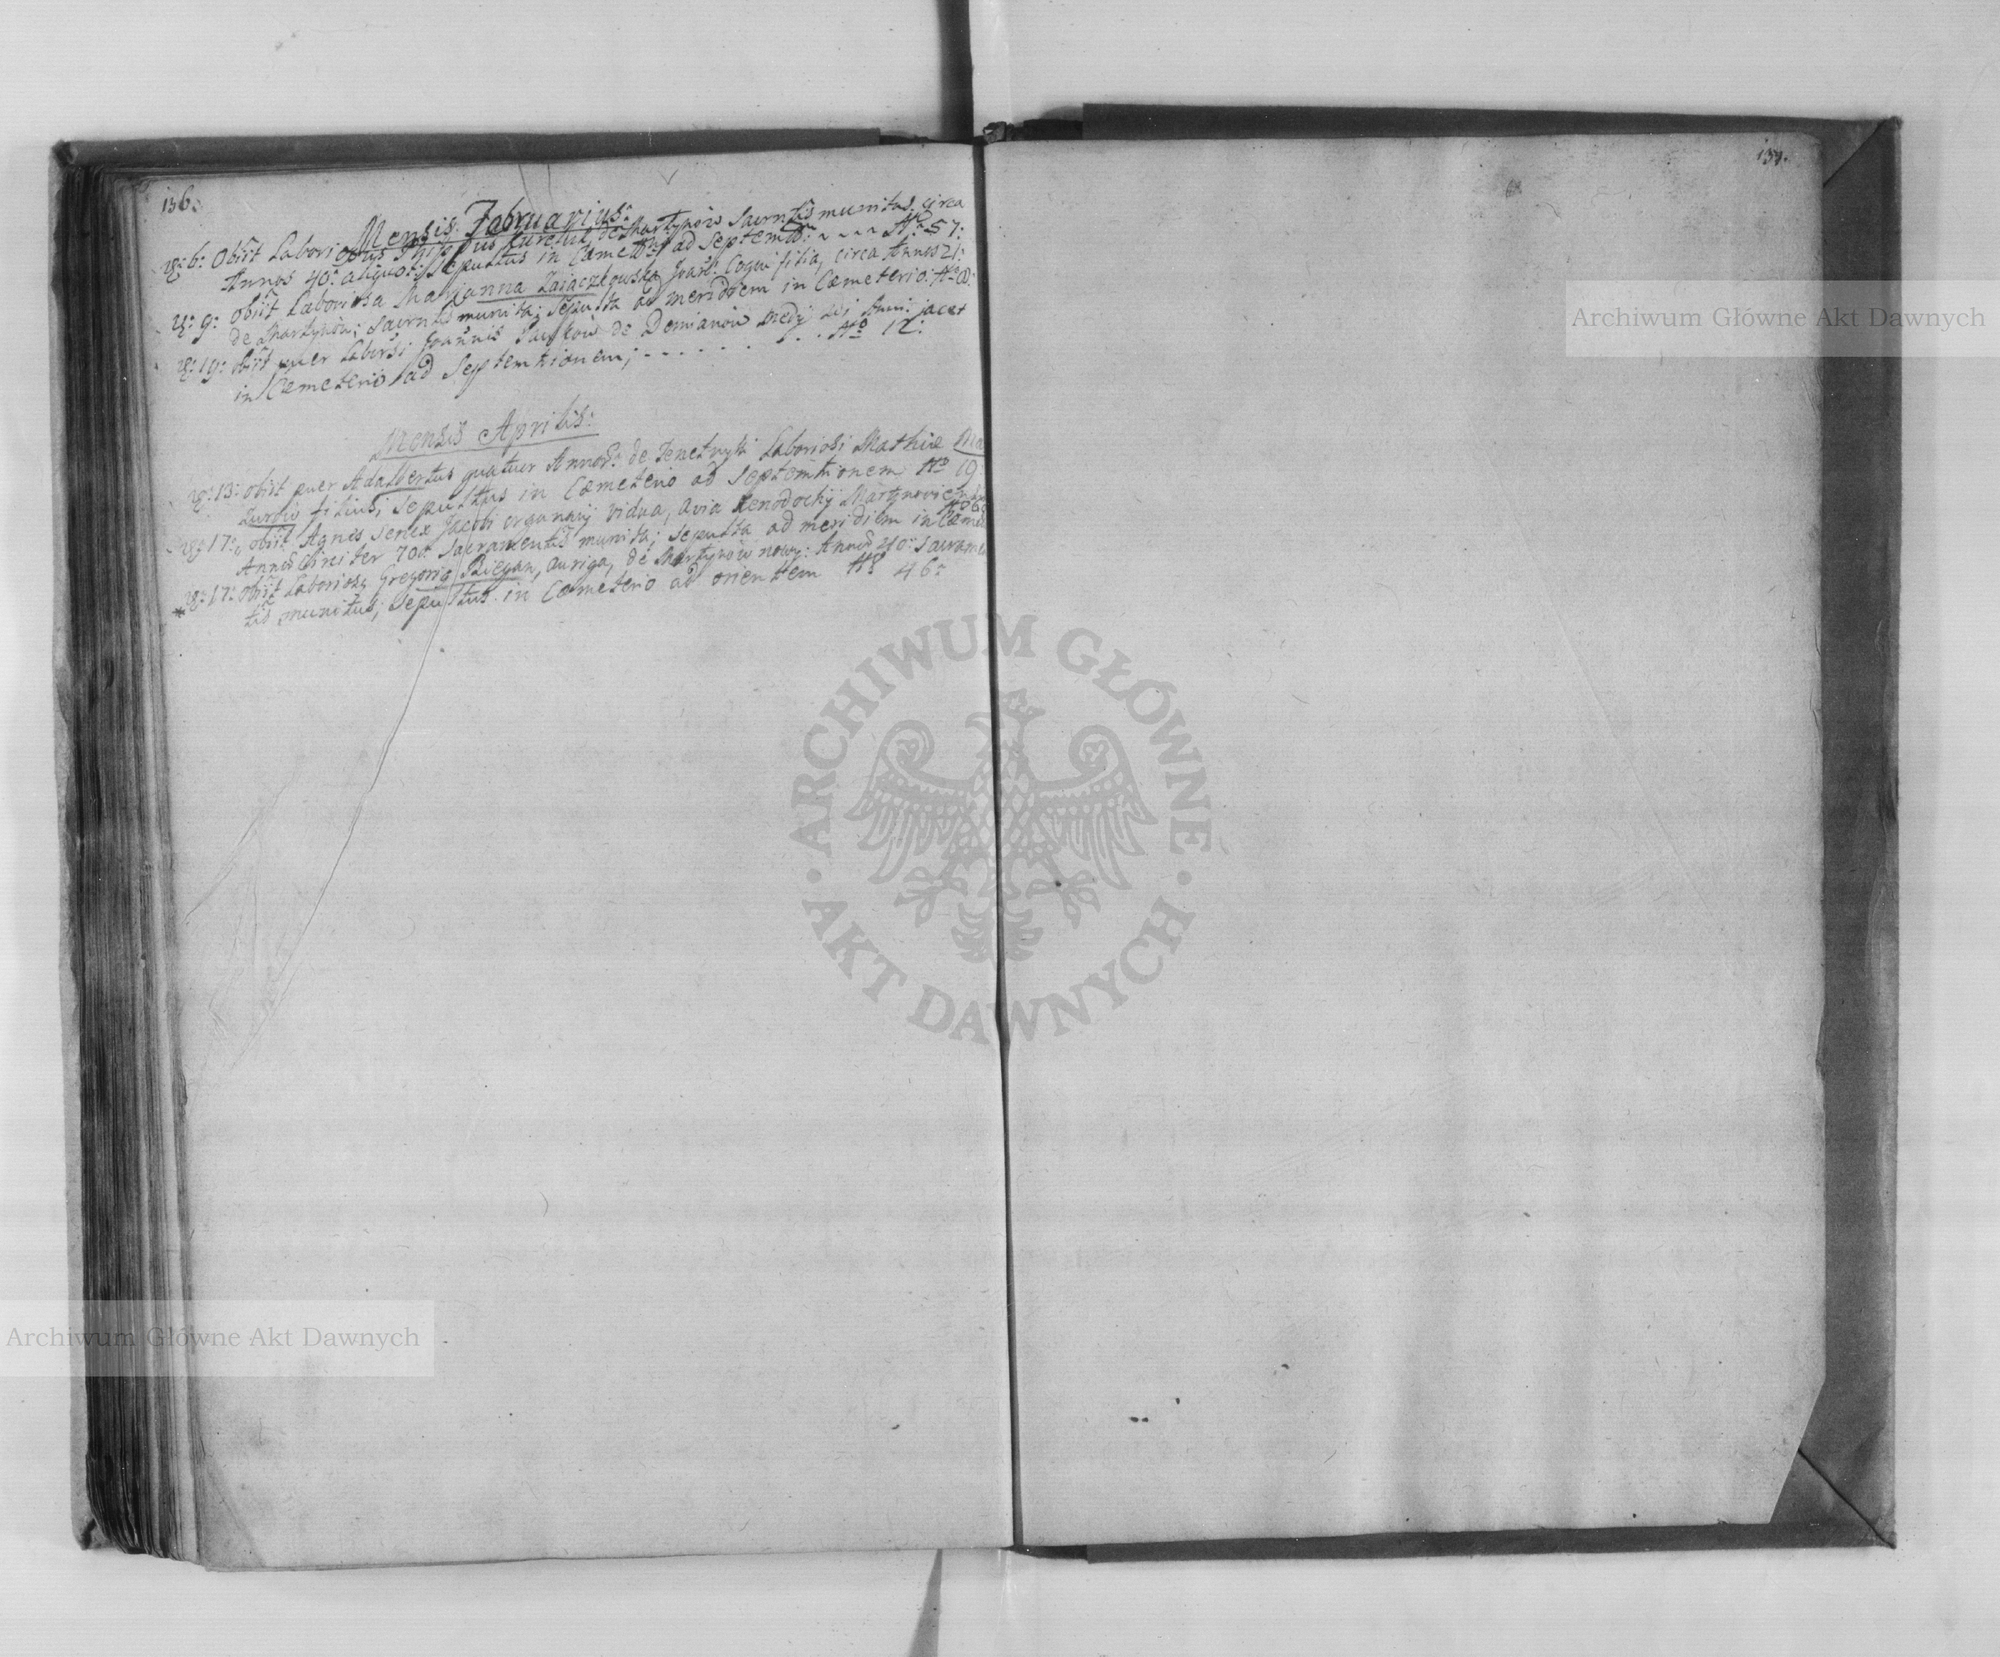 136.
Mensis Februarius:
6: Obiit Laboriosus de Martynów Sacrntis munitus circa
Annos 40: aliquot: Sepultus in Cæmet: ad Septemt: Nº 57:
9: obiit Laboriosa Marianna Zaiączkowska Joań: Coqui filia, circa Annos 21:
de Martynów; Sacrntis munita; Sepulta ad meridiem in Cæmeterio: Nº
19: obiit puer Labrsi Joannis de Demianów medij Anni: jacet
in Cæmeterio ad Septemtrionem; - . . . . . . . . Nº 12:
Mensis Aprilis:
13: obiit puer Adalbertus quatuer Annor: de Tenetnyki Laboriosi Mathiæ
Zurow filius; Sepultus in Cæmeterio ad Septemtrionem Nº 19:
17: obiit Agnis Senex Jacobi organarij vidua, avia Xenodochij
Annos Circiter 70a Sacramentis munita; Sepulta ad meridiem in Cæme
17: obiit Laboriosq Gregoriq Biegan, auriga, de Martynów nowy: Annos 40: Sacramen
tis munitus; Sepultus in Cæmeterio ad orientem Nº 46:
137.
Archiwum Główne Akt Dawnych
ARCHIWUM GŁÓWNE
AKT DAWNYCH
Archiwum Główne Akt Dawnych